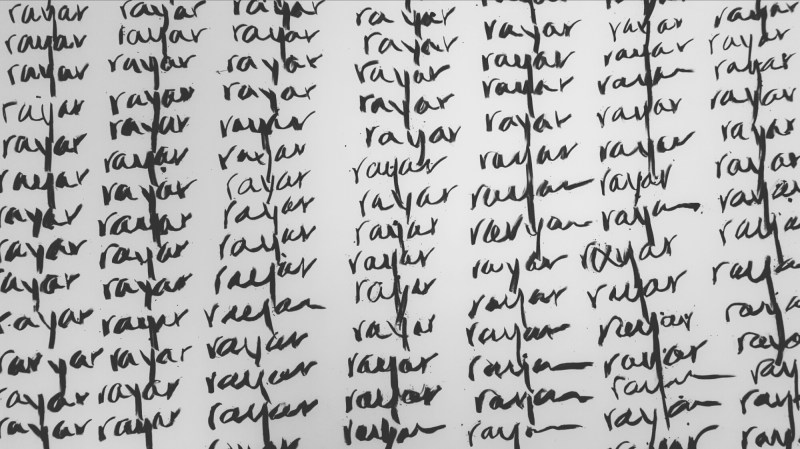 rayar rayar rayar rayar rayar rayar rayar
rayar rayar rayar rayar rayar rayar rayar
rayar rayar rayar rayar rayar rayar rayar
rayar rayar rayar rayar rayar rayar rayar
rayar rayar rayar rayar rayar rayar rayar
rayar rayar rayar rayar rayar rayar rayar
rayar rayar rayar rayar rayar rayar rayar
rayar rayar rayar rayar rayar rayar rayar
rayar rayar rayar rayar rayar rayar rayar
rayar rayar rayar rayar rayar rayar rayar
rayar rayar rayar rayar rayar rayar rayar
rayar rayar rayar rayar rayar rayar rayar
rayar rayar rayar rayar rayar rayar rayar
rayar rayar rayar rayar rayar rayar rayar